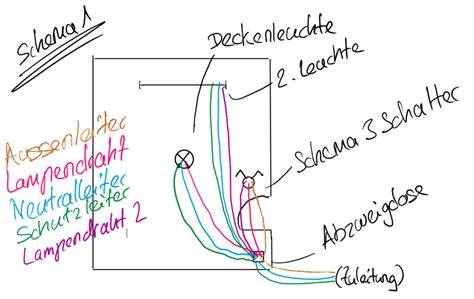 Schema 1
Deckenleuchte
2. Leuchte
Aussenleiter
Lampendraht
Neutralleiter
Schutzleiter
Lampendraht 2
Schema 3 Schalter
Abzweigdose
(Zuleitung)